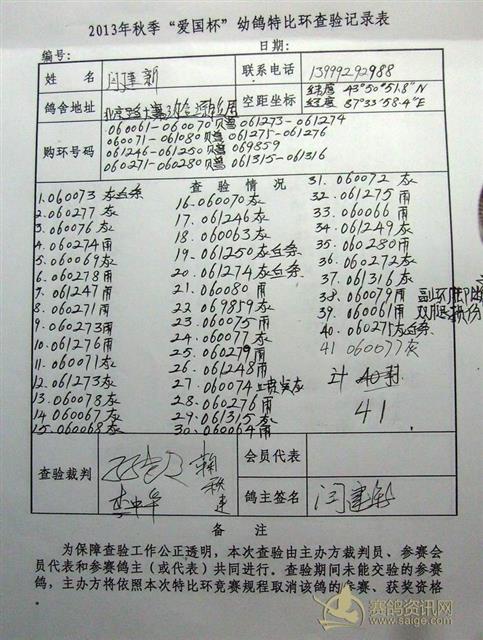 2013年秋季“爱国杯”幼鸽特比环查验记录表
编号： 日期：
姓名 闫建新 联系电话 13999292988
鸽舍地址 空距坐标 纬度 43°50′51.8″N
经度 87°33′58.4″E
购环号码 060061-060070 061273-061274
060071-061080 061275-061276
061246-061250 069859
060271-060280 061315-061316
查验情况
1.060073 灰白条
2.060277 灰
3.060076 灰
4.060274 雨
5.060069 灰
6.060278 雨
7.061247 雨
8.060271 雨
9.060273 雨
10.061276 雨
11.060071 灰
12.061273 灰
13.060078 灰
14.060067 灰
15.060068 灰
16.060070 灰
17.061246 灰
18.060063 灰
19.061250 灰白条
20.061274 灰白条
21.060080 雨
22.069859 灰
23.060075 雨
24.060077 灰
25.060279 雨
26.061248 雨
27.060074 灰
28.060276 雨
29.061315 灰
30.060064 雨
31.060072 灰
32.061275 雨
33.060066 雨
34.061249 灰
35.060280 雨
36.060272 灰
37.061316 灰
38.060079 雨 副环
39.060061 雨 双腿损伤
40.060275 灰白条
41 060077 灰
计 40 羽
41
查验裁判 李中华 会员代表
鸽主签名 闫建新
备注
为保障查验工作公正透明，本次查验由主办方裁判员、参赛会
员代表和参赛鸽主（或代表）共同进行。查验期间未能交验的参赛
鸽，主办方将依照本次特比环竞赛规程取消该鸽的参赛、获奖资格
。
赛鸽资讯网
www.saige.com